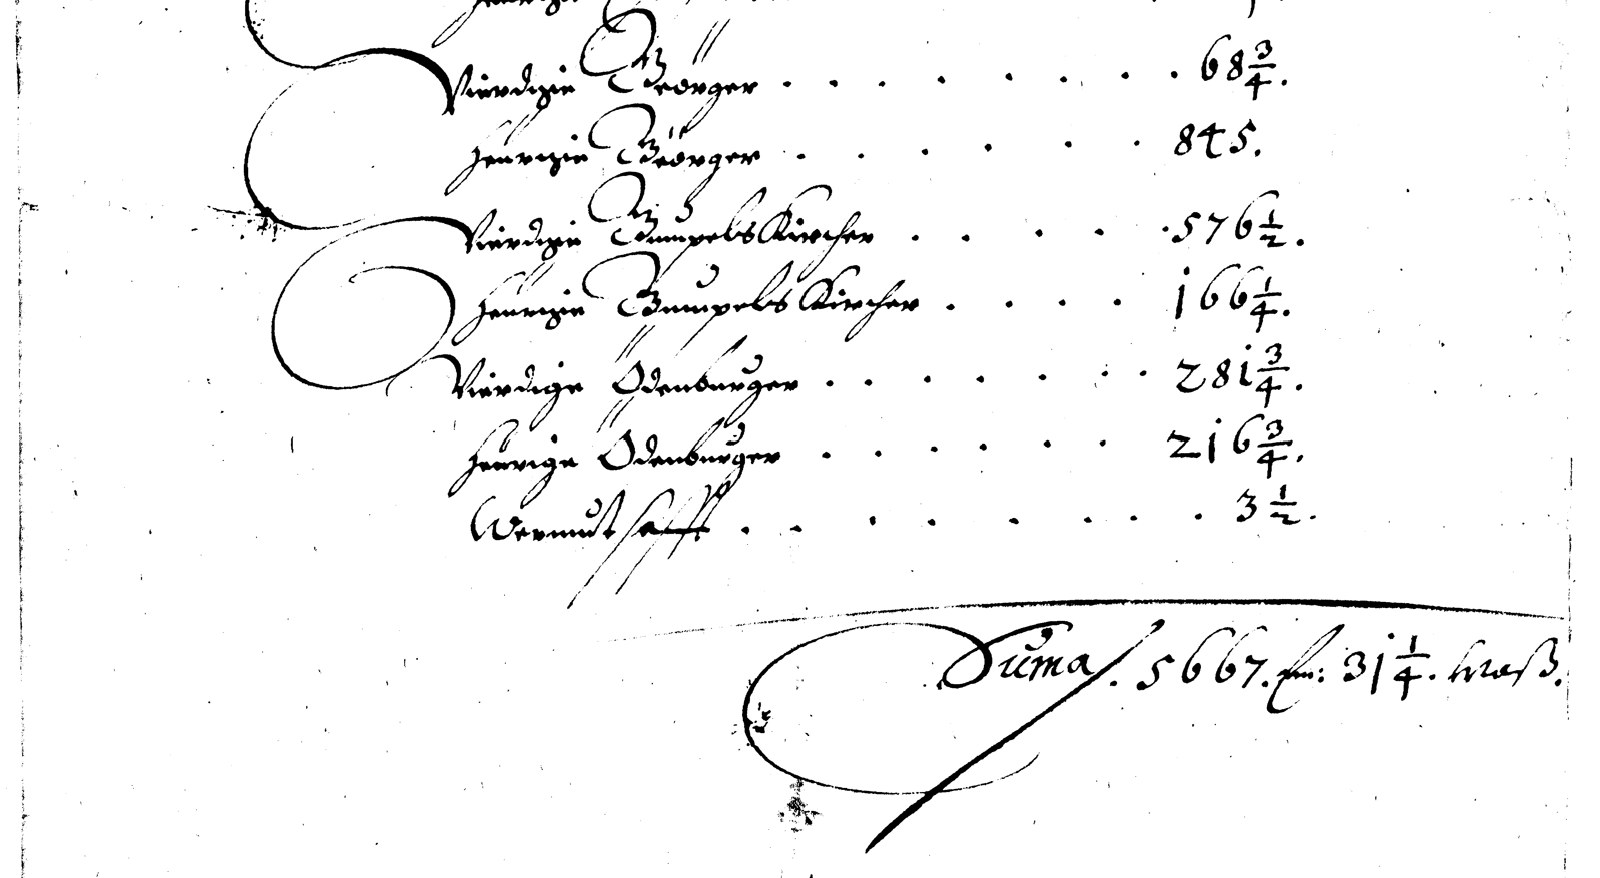 Vierdige Geörger . . . . . . . . 68 3/4.
Heurige Geörger . . . . . . 845.
Vierdige Gumpelskircher . . . . . 576 1/2.
Heurige Gumpelskircher . . . . 166 1/4.
Vierdige Ödenburger . . . . . . 281 3/4.
Heurige Ödenburger . . . . . . 216 3/4.
Wermutsafft . . . . . . . . 3 1/2.
Suma. 5667. Em: 31 1/4. Maß.